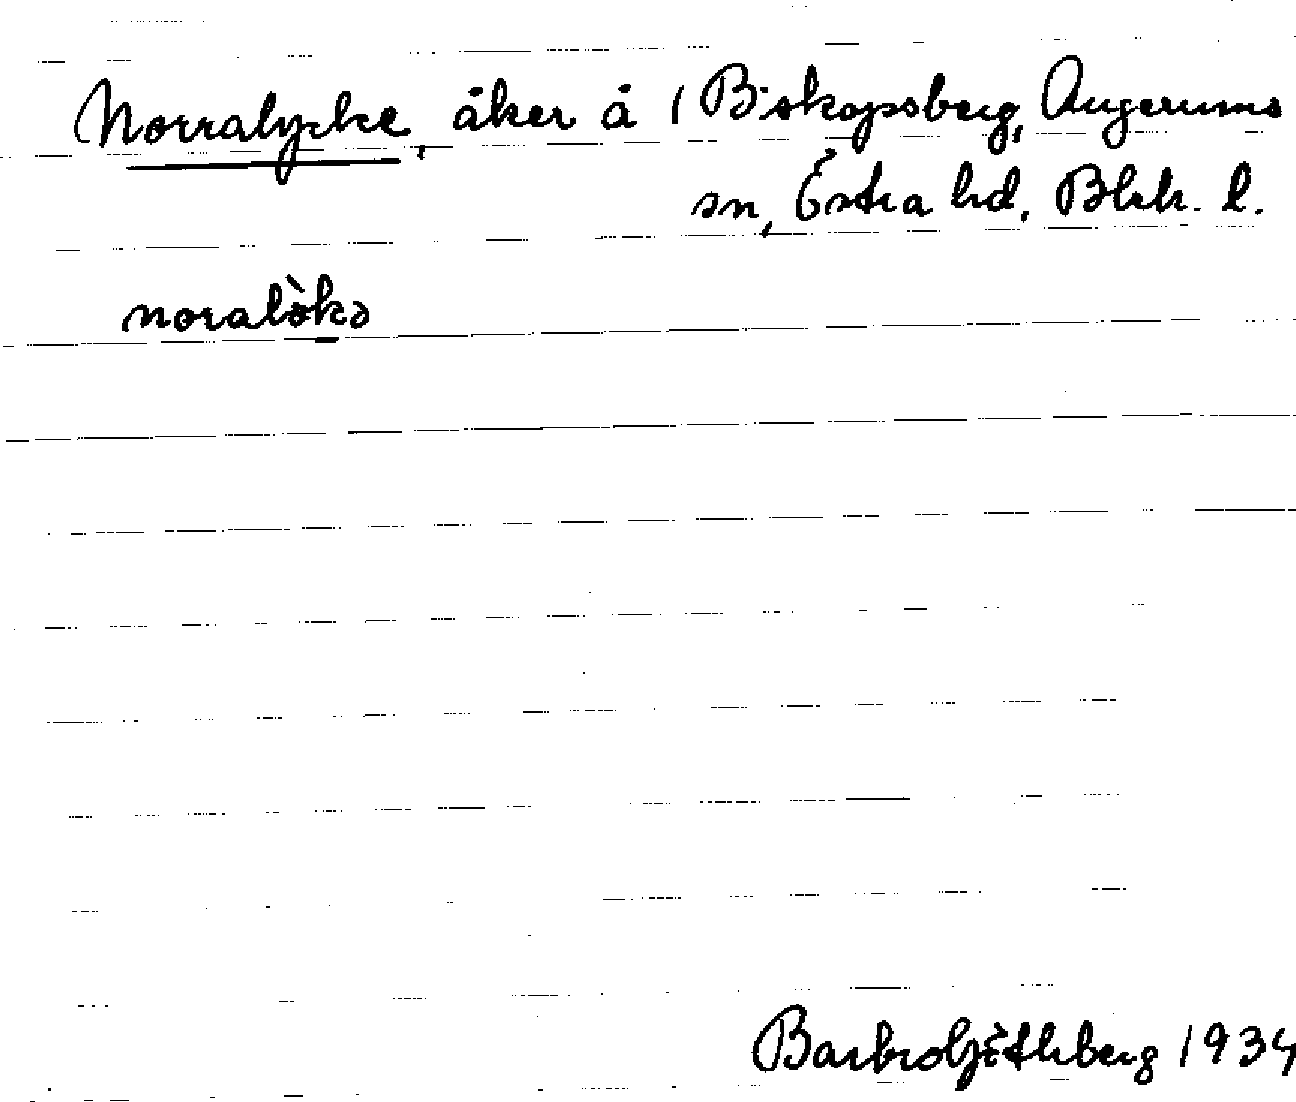 Norralycke, åker å 1 Biskopsberg, Augerums
sn, Östra hd. Blek. l.
noralòkə
Barbro Götherberg 1934